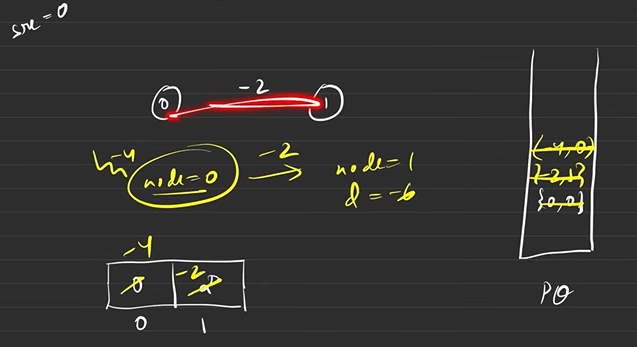 src = 0
-2
0 1
-4 node = 0 -2 node = 1
d = -6
(-4, 0)
{-2, 1}
{0, 0}
-4
0 -2
0 1
PQ